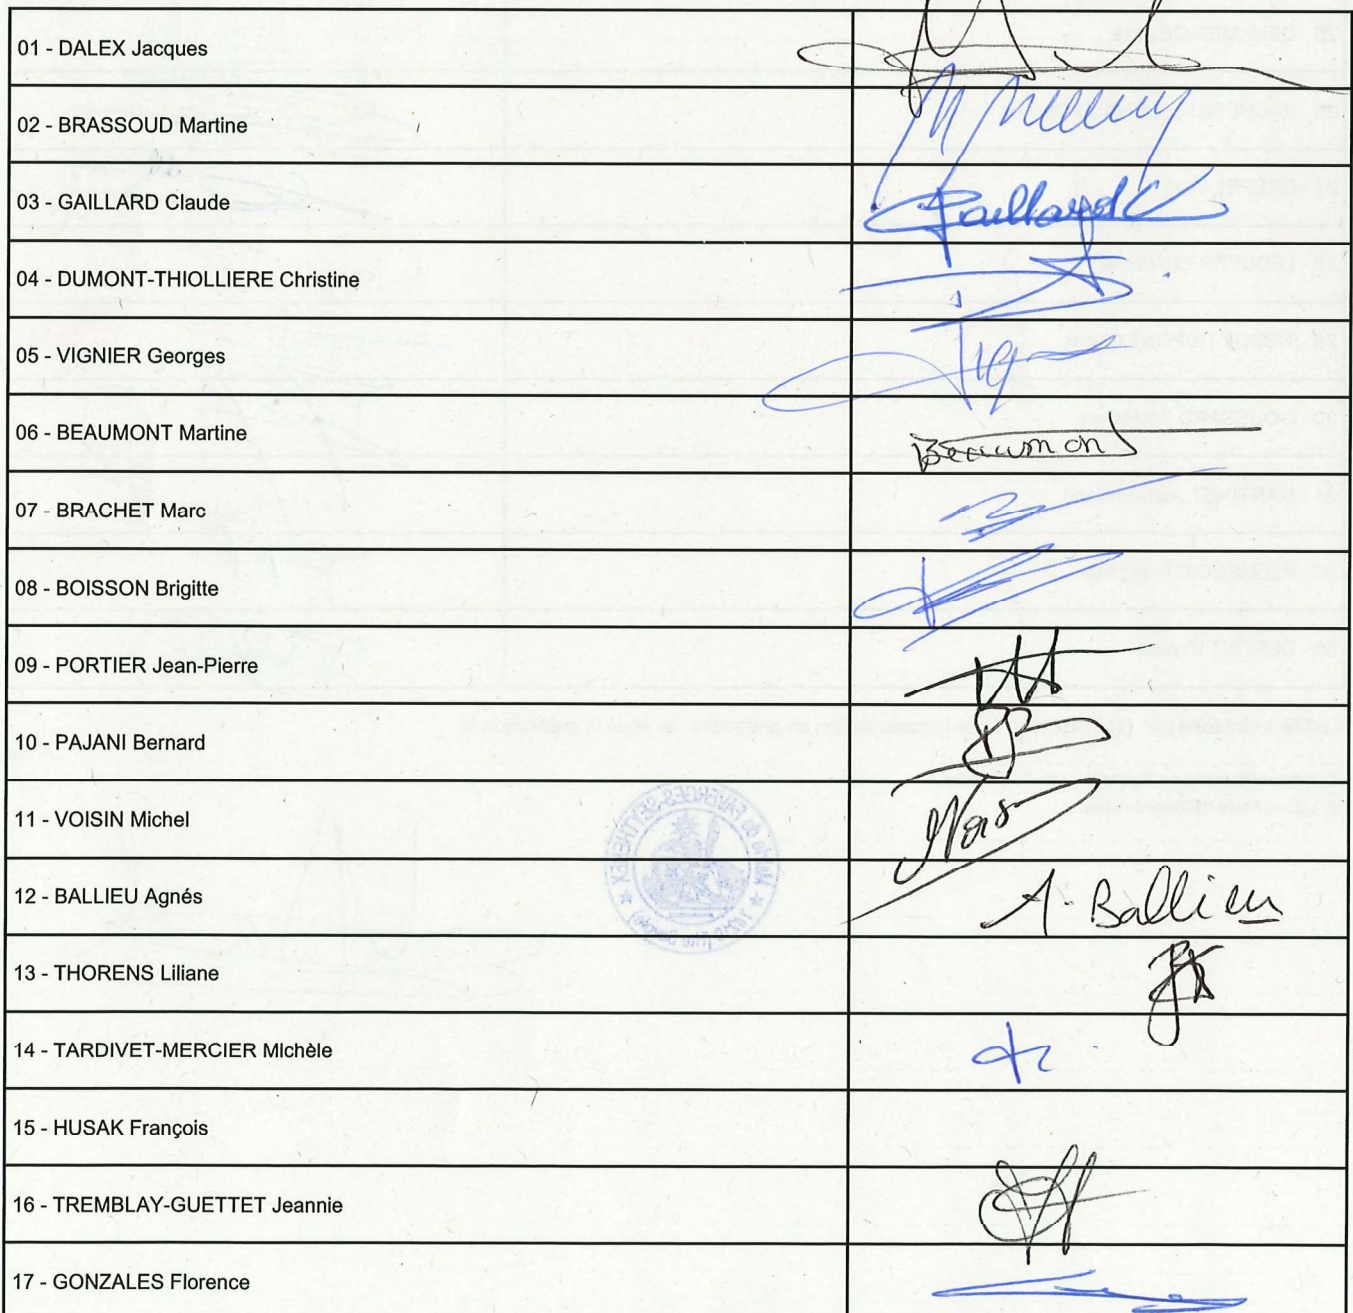 01 - DALEX Jacques
02 - BRASSOUD Martine
03 - GAILLARD Claude
Gaillard C
04 - DUMONT-THIOLLIERE Christine
05 - VIGNIER Georges
06 - BEAUMONT Martine
Beaumont
07 - BRACHET Marc
08 - BOISSON Brigitte
09 - PORTIER Jean-Pierre
10 - PAJANI Bernard
11 - VOISIN Michel
12 - BALLIEU Agnés
A. Ballieu
13 - THORENS Liliane
14 - TARDIVET-MERCIER Michèle
15 - HUSAK François
16 - TREMBLAY-GUETTET Jeannie
17 - GONZALES Florence